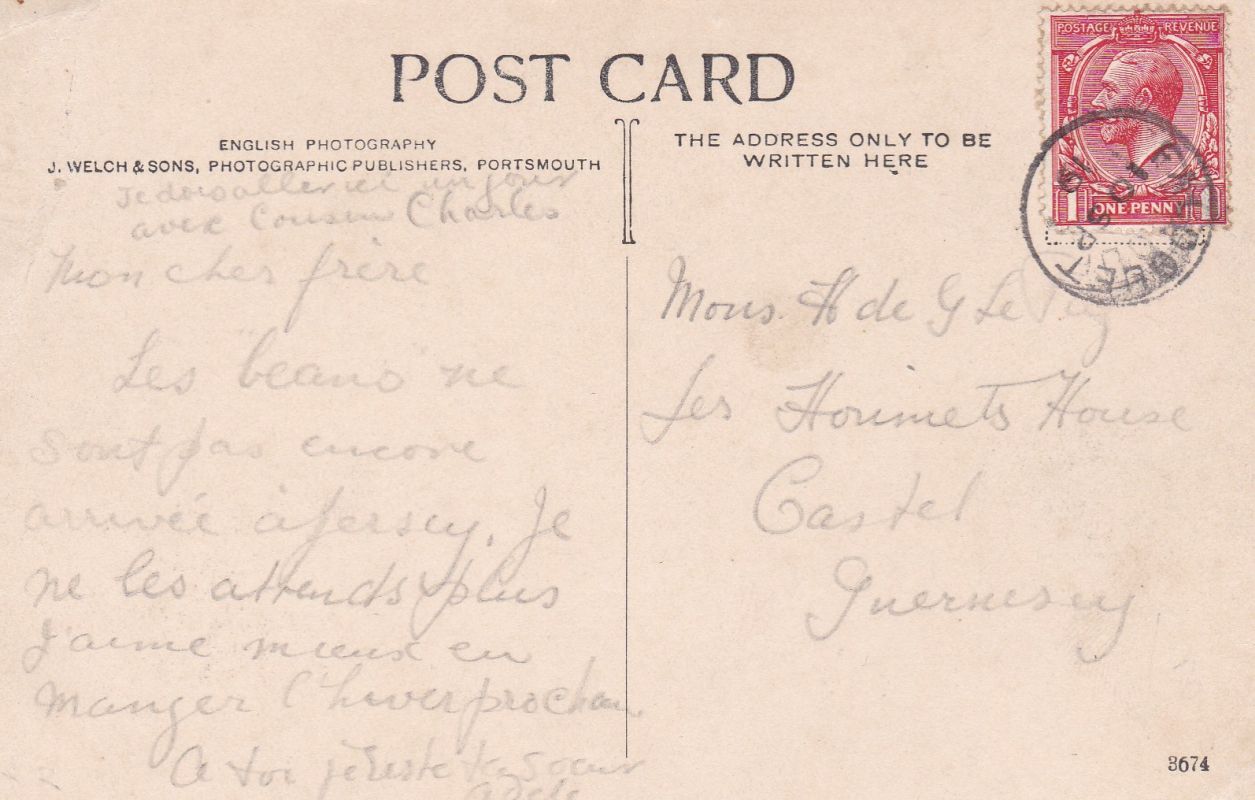 POST CARD
ENGLISH PHOTOGRAPHY
J. WELCH & SONS, PHOTOGRAPHIC PUBLISHERS, PORTSMOUTH
THE ADDRESS ONLY TO BE
WRITTEN HERE
POSTAGE REVENUE
1 ONE PENNY 1
Je dois aller ici un jour
avec Cousin Charles
Mon cher frère
Les beans ne
sont pas encore
arrivée à Jersey. Je
ne les attends plus
J'aime mieux en
manger l'hiver prochain
A toi je reste ta soeur
Adele
Mons. H de G Le
Les Houmets House
Castel
Guernesey
3674